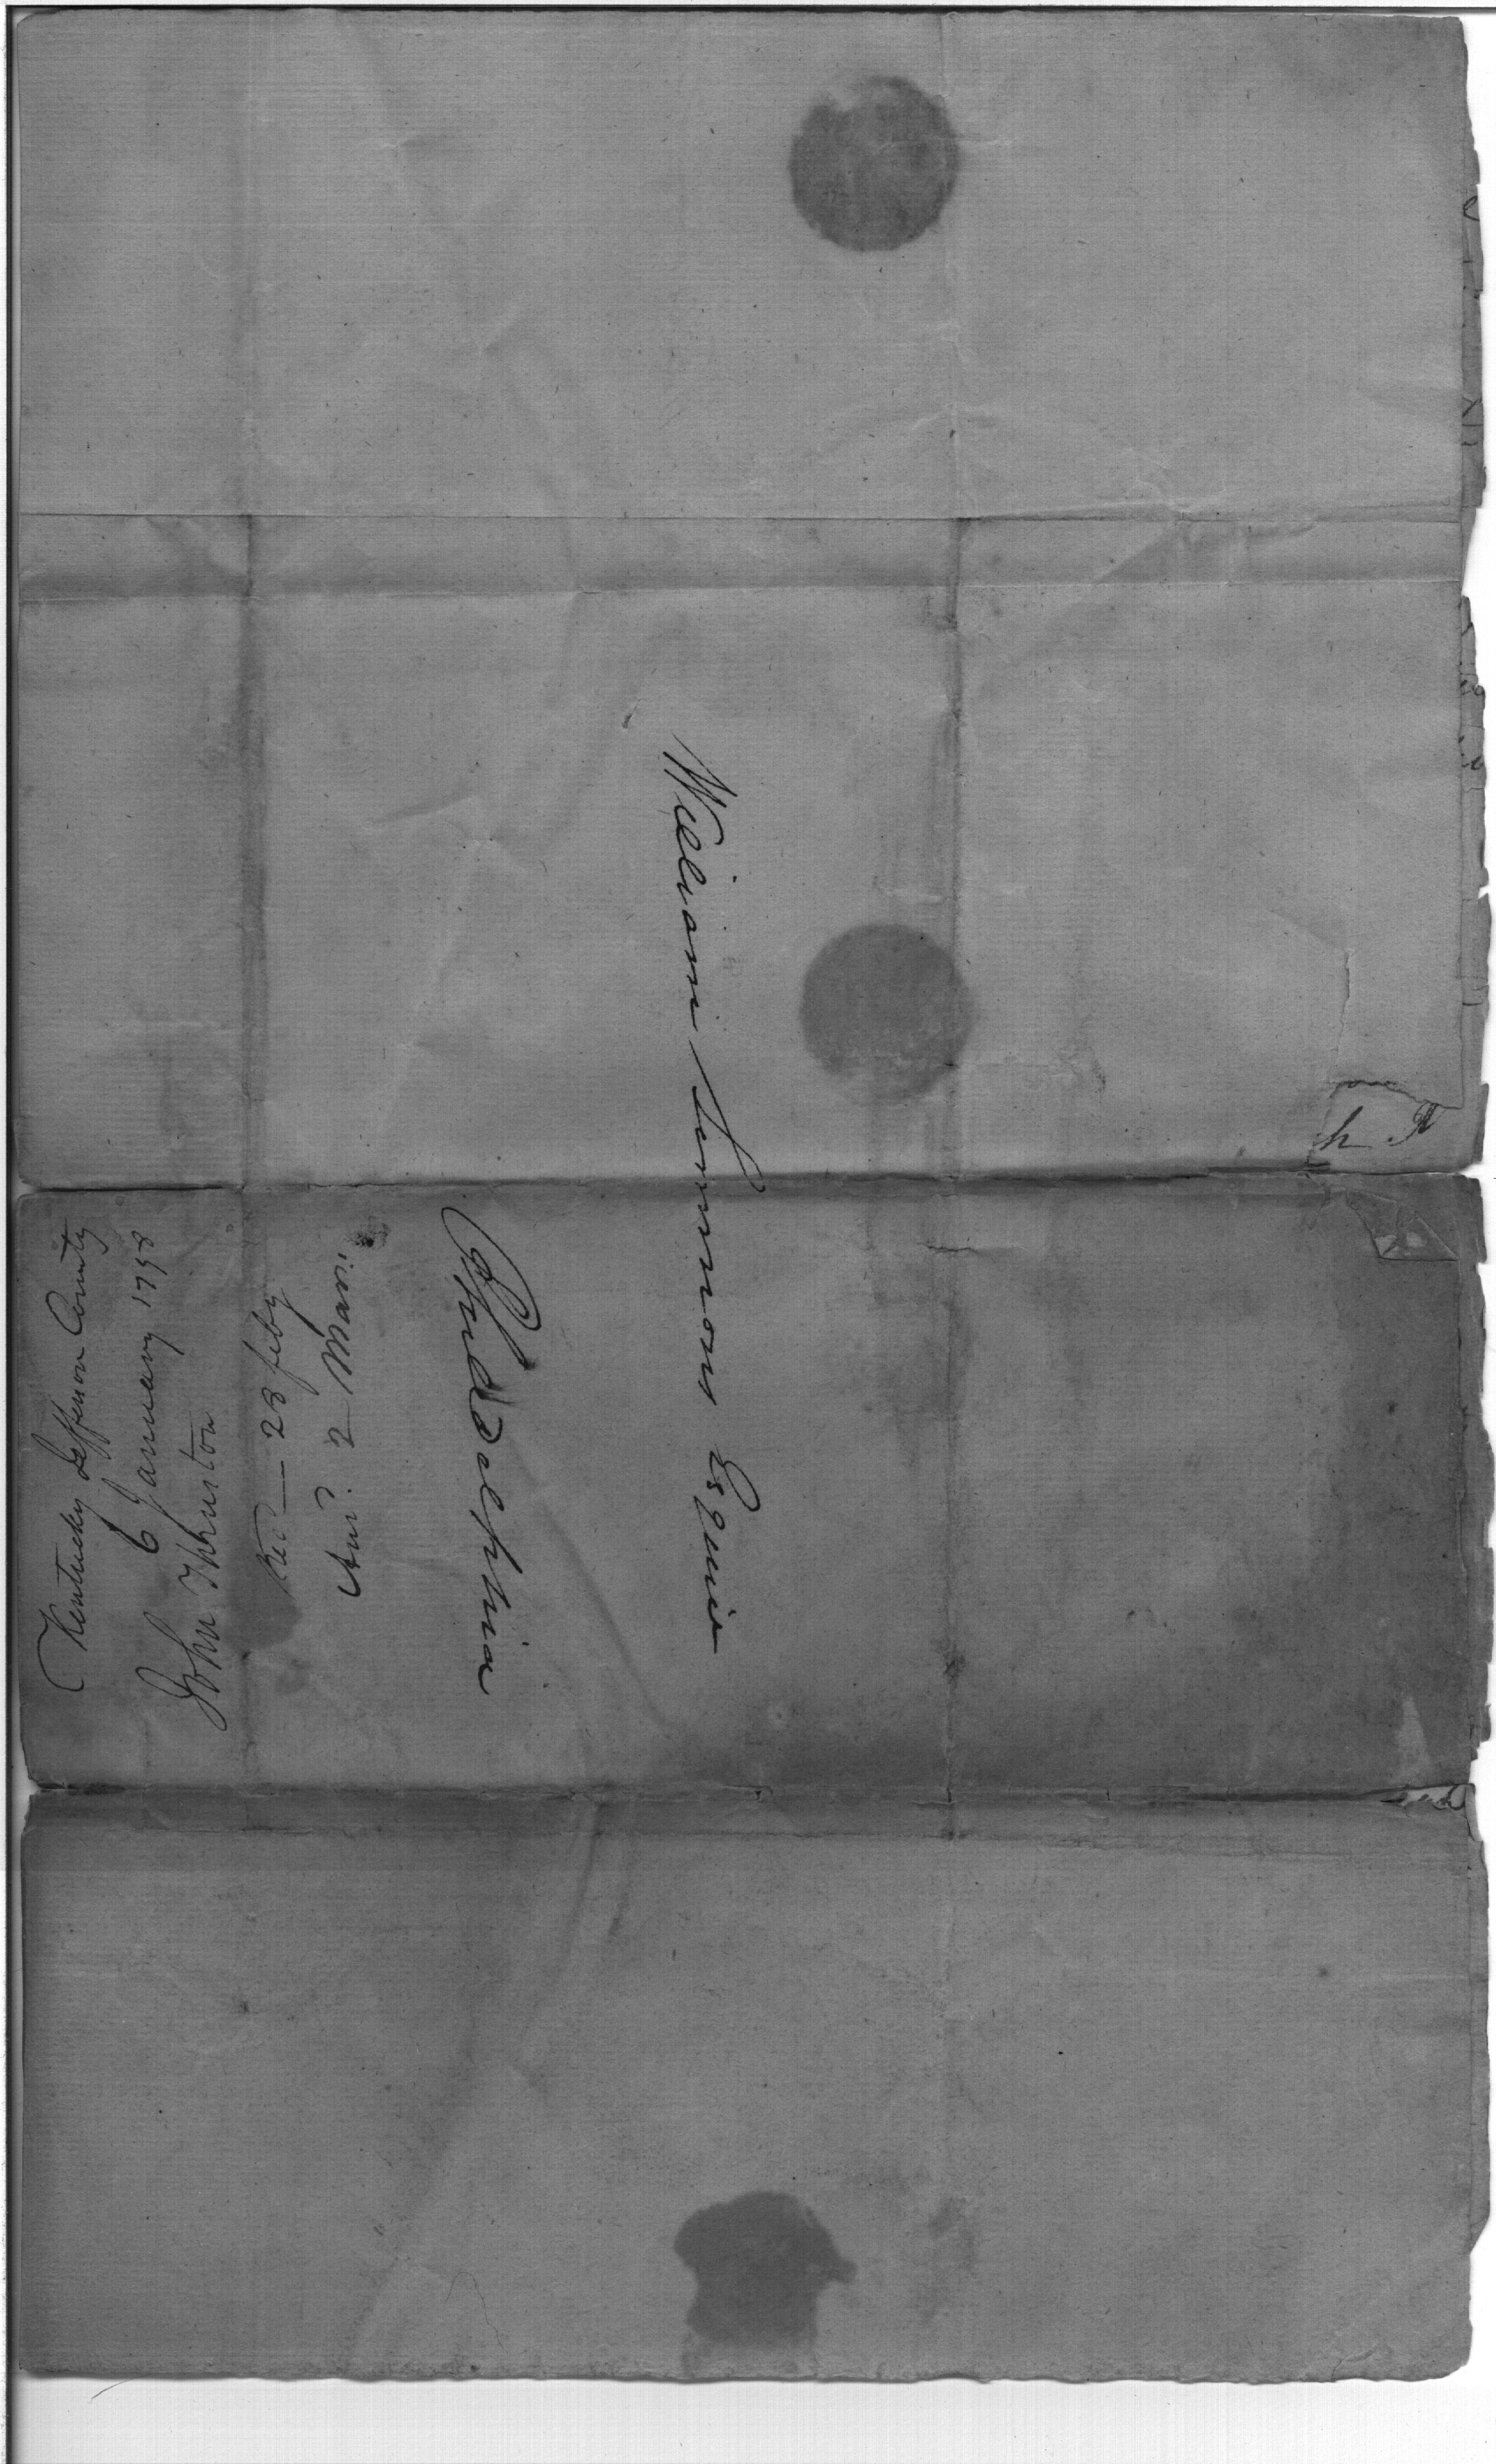 William Simmons Esquire
Philadelphia
Kentucky Jefferson County
6 January 1798
John Thruston
Recd — 23 feby
Ansd. 2 March